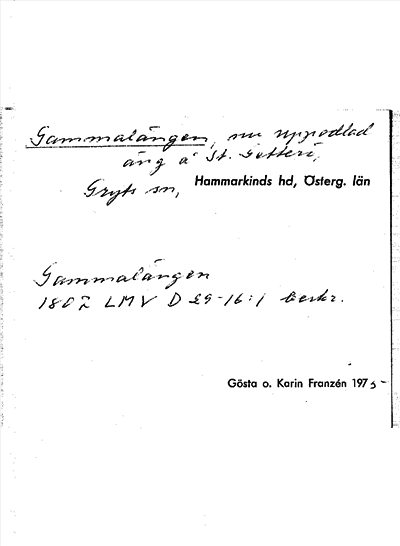 Gammalängen, nu uppodlad
äng å St. Gotteri,
Gryts sn, Hammarkinds hd, Österg. län
Gammalängen
1802 LMV D 29-16:1 beskr.
Gösta o. Karin Franzén 1975